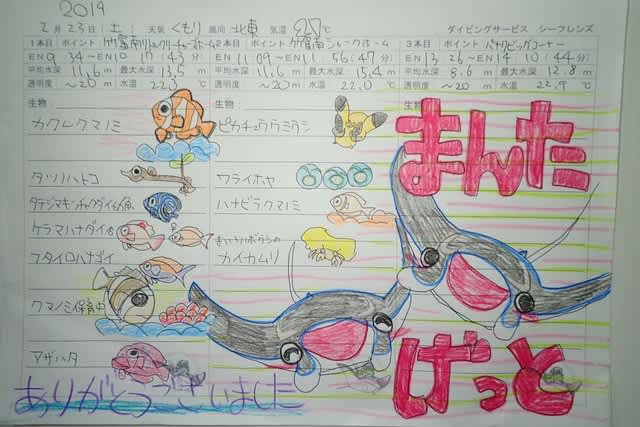 2019
2月23日(土) 天気 くもり 風向 北東 気温 27℃ ダイビングサービス シーフレンズ
1本目 ポイント 竹富南リトルクリーチャーホーム 2本目 ポイント 竹富南シャークホーム 3本目 ポイント パナリビッグコーナー
EN 9 34〜EN 10 17(43分) EN 11 09〜EN 11 56(47分) EN 13 26〜EN 14 10(44分)
平均水深 11.6m 最大水深 13.5m 平均水深 11.6m 最大水深 15.4m 平均水深 8.6m 最大水深 12.8m
透明度 〜20m 水温 22.0℃ 〜20m 水温 22.0℃ 透明度 〜20m 水温 22.9℃
生物: 生物: 生物:
カクレクマノミ ピカチュウウミウシ
まんた
タツノハトコ ワライボヤ
タテジマキンチャクダイ幼魚 ハナビラクマノミ
ケラマハナダイ
フタイロハナゴイ カイカムリ
クマノミ保育中
アザハタ
げっと
ありがとうございました